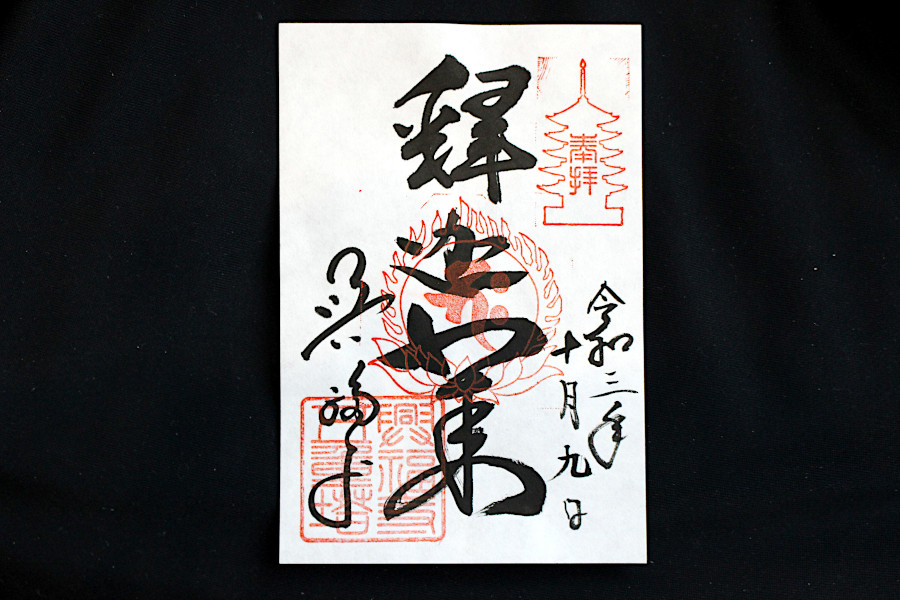 奉拝
令和三年
十月九日
釋迦如来
興福寺
興福寺
五重塔